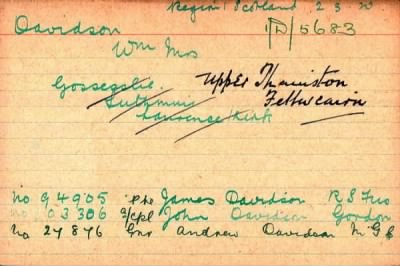 Region Scotland 2 3 20
Davidson
D/5683
Wm Mrs
Gosseslie Upper Thainston
Luthmuir Fettercairn
Laurencekirk
No 94905 Pte James Davidson R S Fus
No 03306 L/Cpl John Davidson Gordon
No 27876 Gnr Andrew Davidson M G C